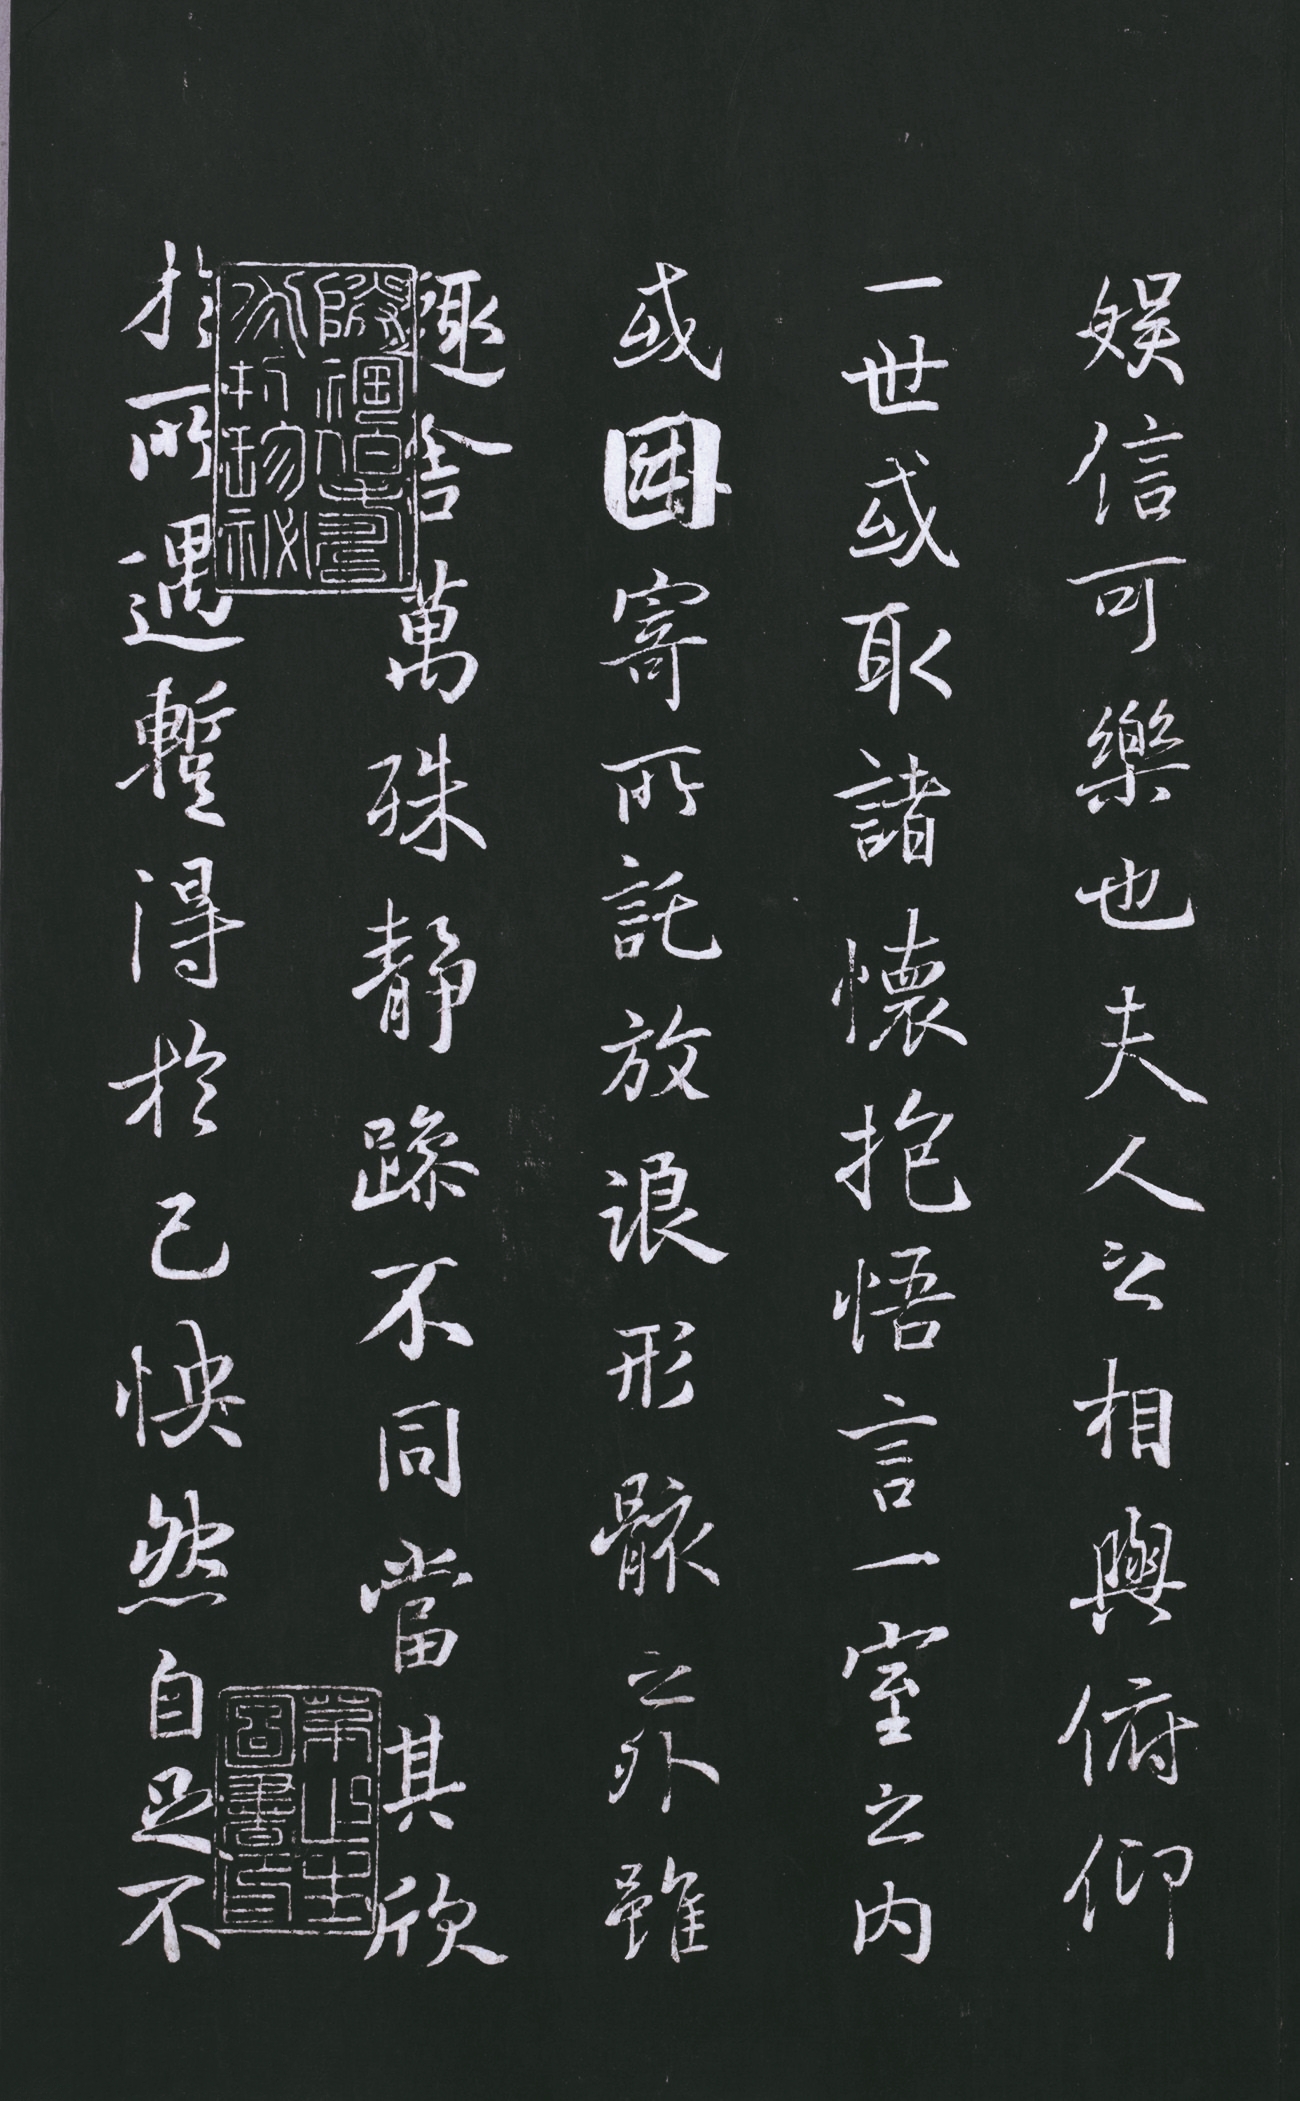 娛信可樂也夫人之相與俯仰
一世或取諸懷抱悟言一室之內
或因寄所託放浪形骸之外雖
趣舍萬殊靜躁不同當其欣
於所遇暫得於己怏然自足不
圖書印